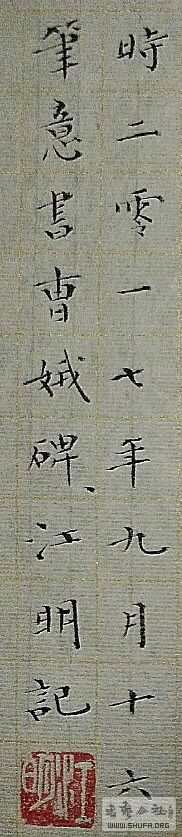 時二零一七年九月十六
筆意書曹娥碑、江明記
江明
WWW.SHUFA.ORG